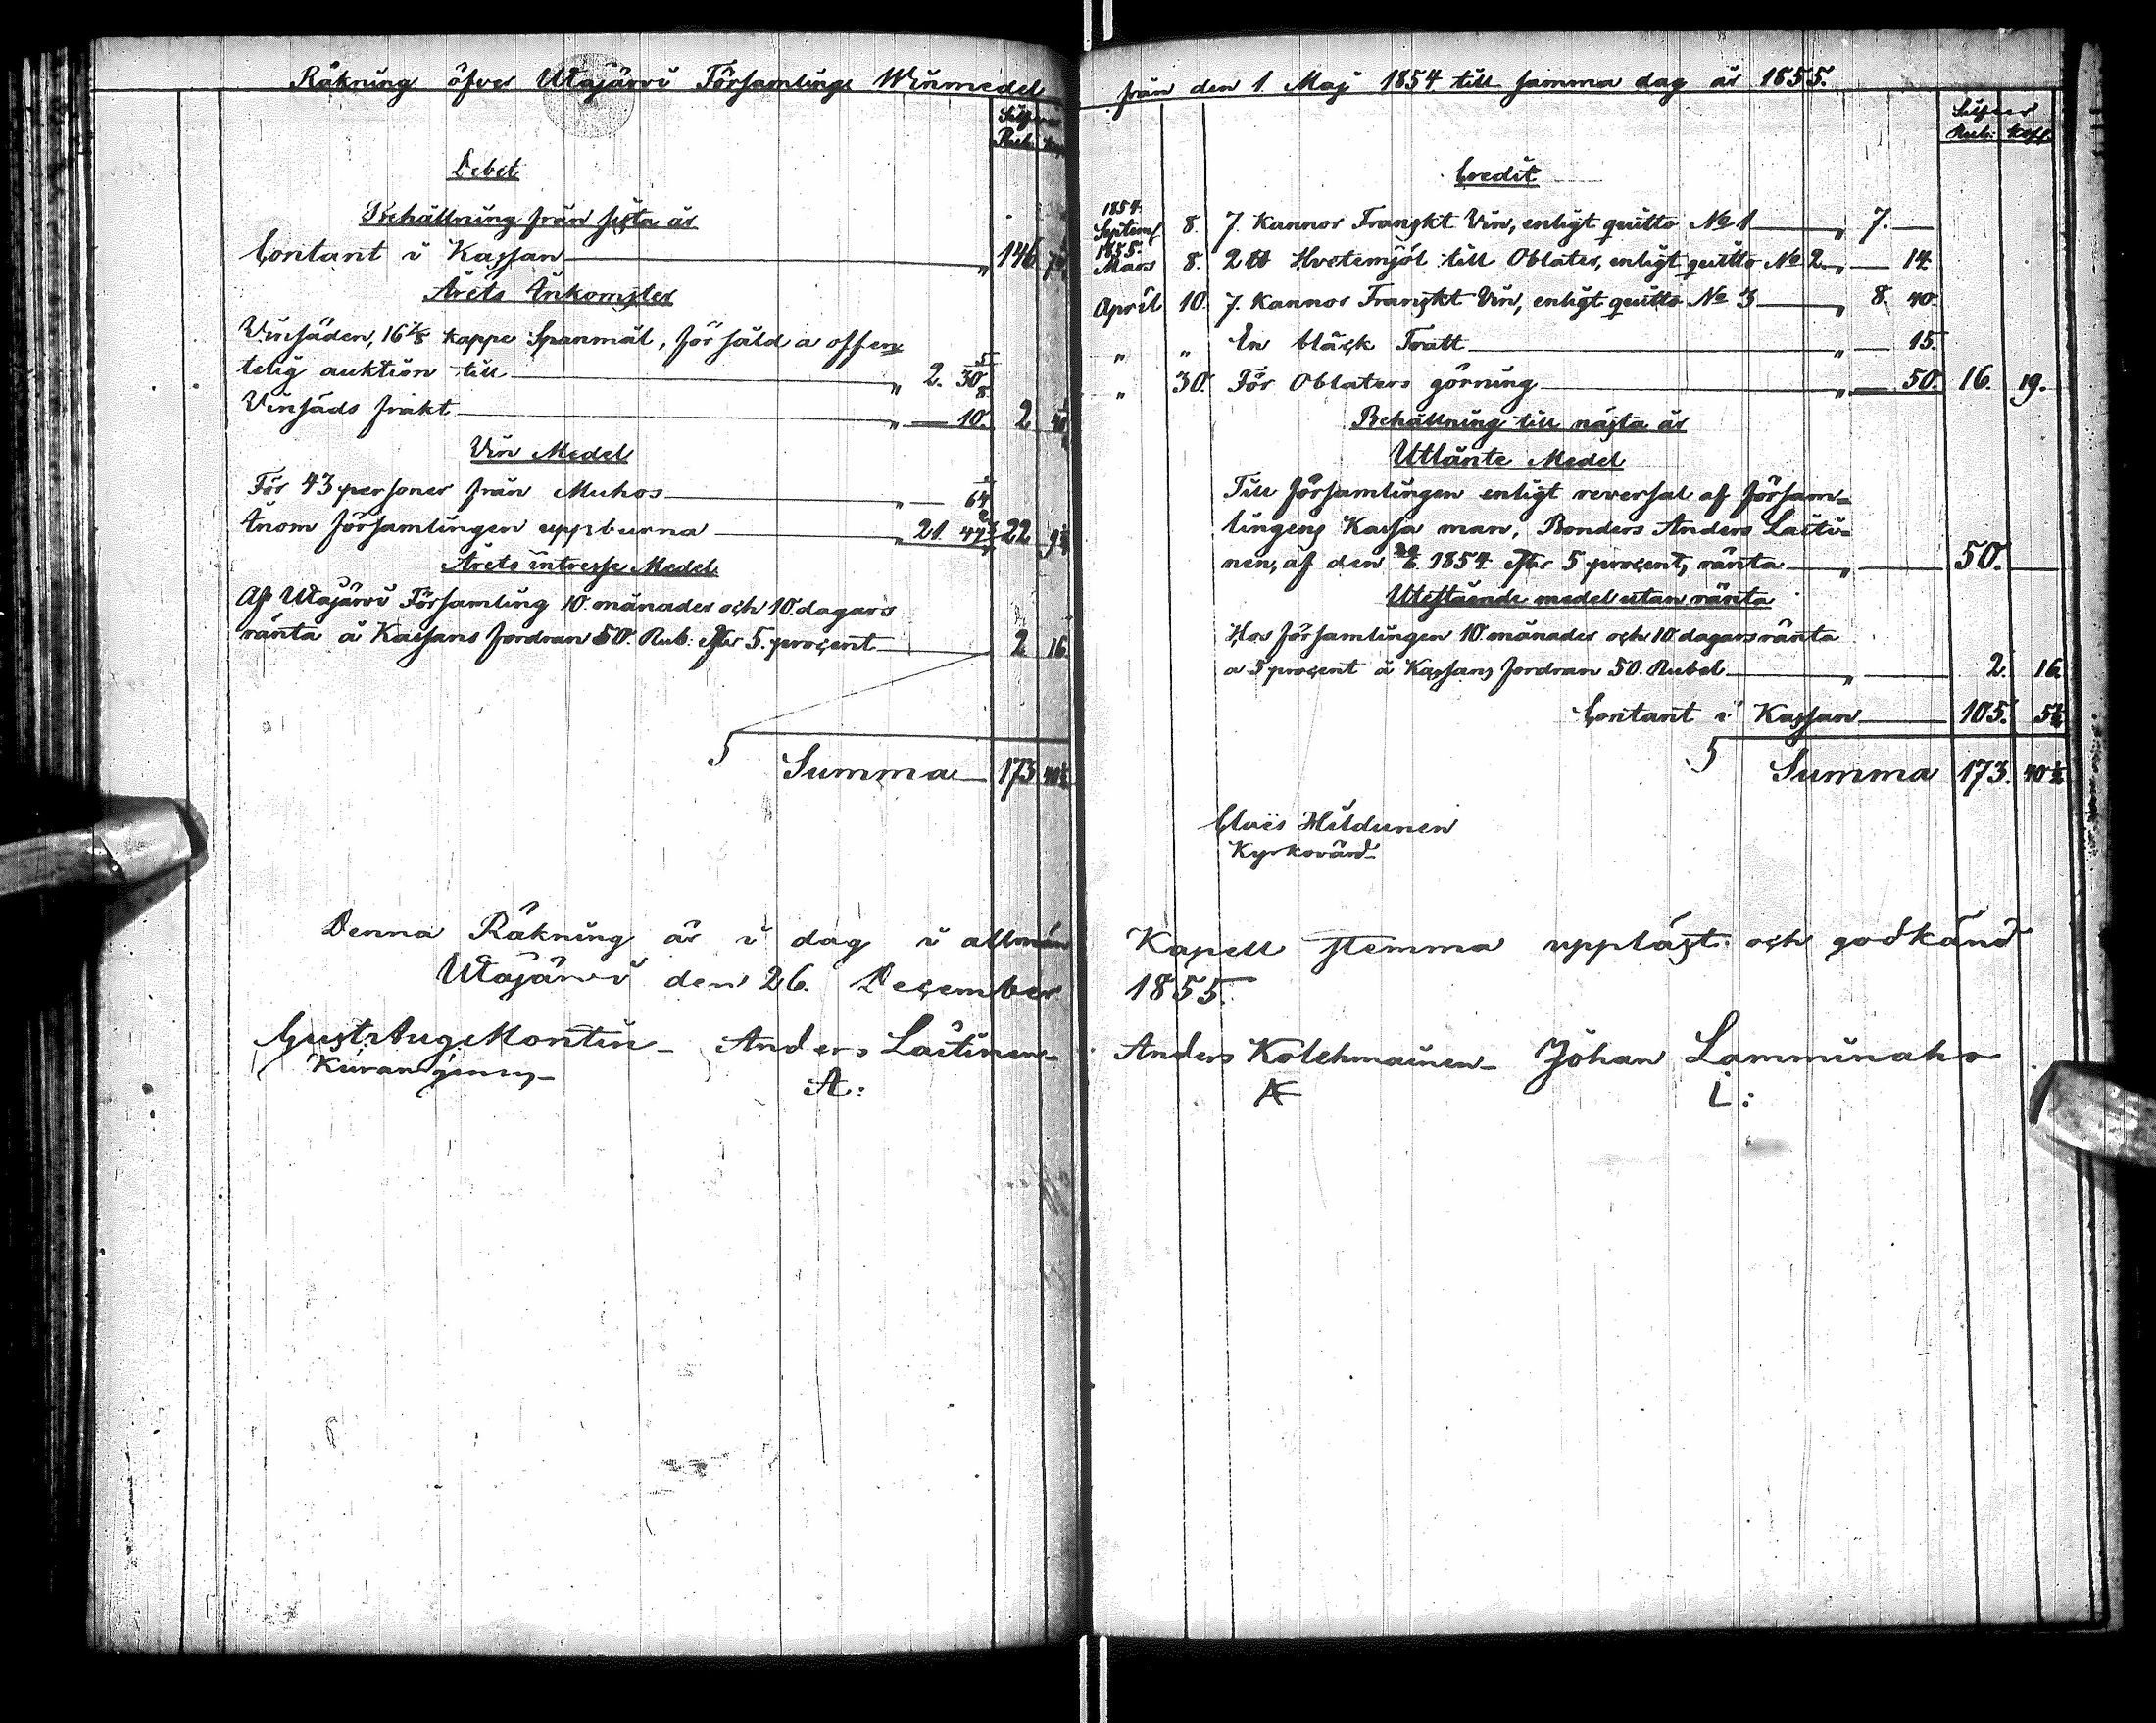 Räkning öfver Utajärvi Församlings Winmedel
Silfver
Rub. Kop.
Debet
Behållning från sista år
Contant i Kassan " 146.
Årets Inkomster
Vinsäden, 16 7/8 kappe Spanmål, försåld a offen
telig auktion till " 2. 30
Vinsäds frakt " — 10. 2
Vin Medel
För 43 personer från Muhos " — 64
Inom församlingen uppburna " 21. 22
Årets intresse Medel
Af Utajärvi Församling 10 månader och 10 dagars
ränta å Kassans fordran 50. Rub. efter 5. procent 2 16.
Summa 173 40½
Denna Räkning är i dag i allmän
Utajärvi den 26. December
Gust. Aug. Montin Anders Laitinen
A:
från den 1. Maj 1854 till samma dag år 1855.
Silfver
Rub. Kop.
Credit
1854
Septemb. 8. 7. Kannor Franskt Vin, enligt quitto No 1 " 7. —
1855
Mars 8. 2 ℔ Hvetemjöl till Oblater, enligt quitto No 2. " — 14.
April 10. 7. Kannor Franskt Vin, enligt quitto No 3 " 8. 40.
" " En bläck Tratt " — 15.
" 30. För Oblaters görning " — 50. 16. 19.
Behållning till nästa år
Utlånte Medel
Till församlingen enligt reversal af försam-
lingens Kassa man, Bonden Anders Laiti-
nen, af den 1854 efter 5 procent, ränta " 50. —
Utestående medel utan ränta
Hos församlingen 10 månader och 10 dagars ränta
a 5 procent å Kassans fordran 50. Rubel " 2. 16.
Contant i Kassan 105. 5½
Summa 173. 40½
Clais Hildunen
Kyrkovärd
Kapell stemma uppläst och godkänd
1855.
Anders Kolehmainen Johan Lamminaho
L: